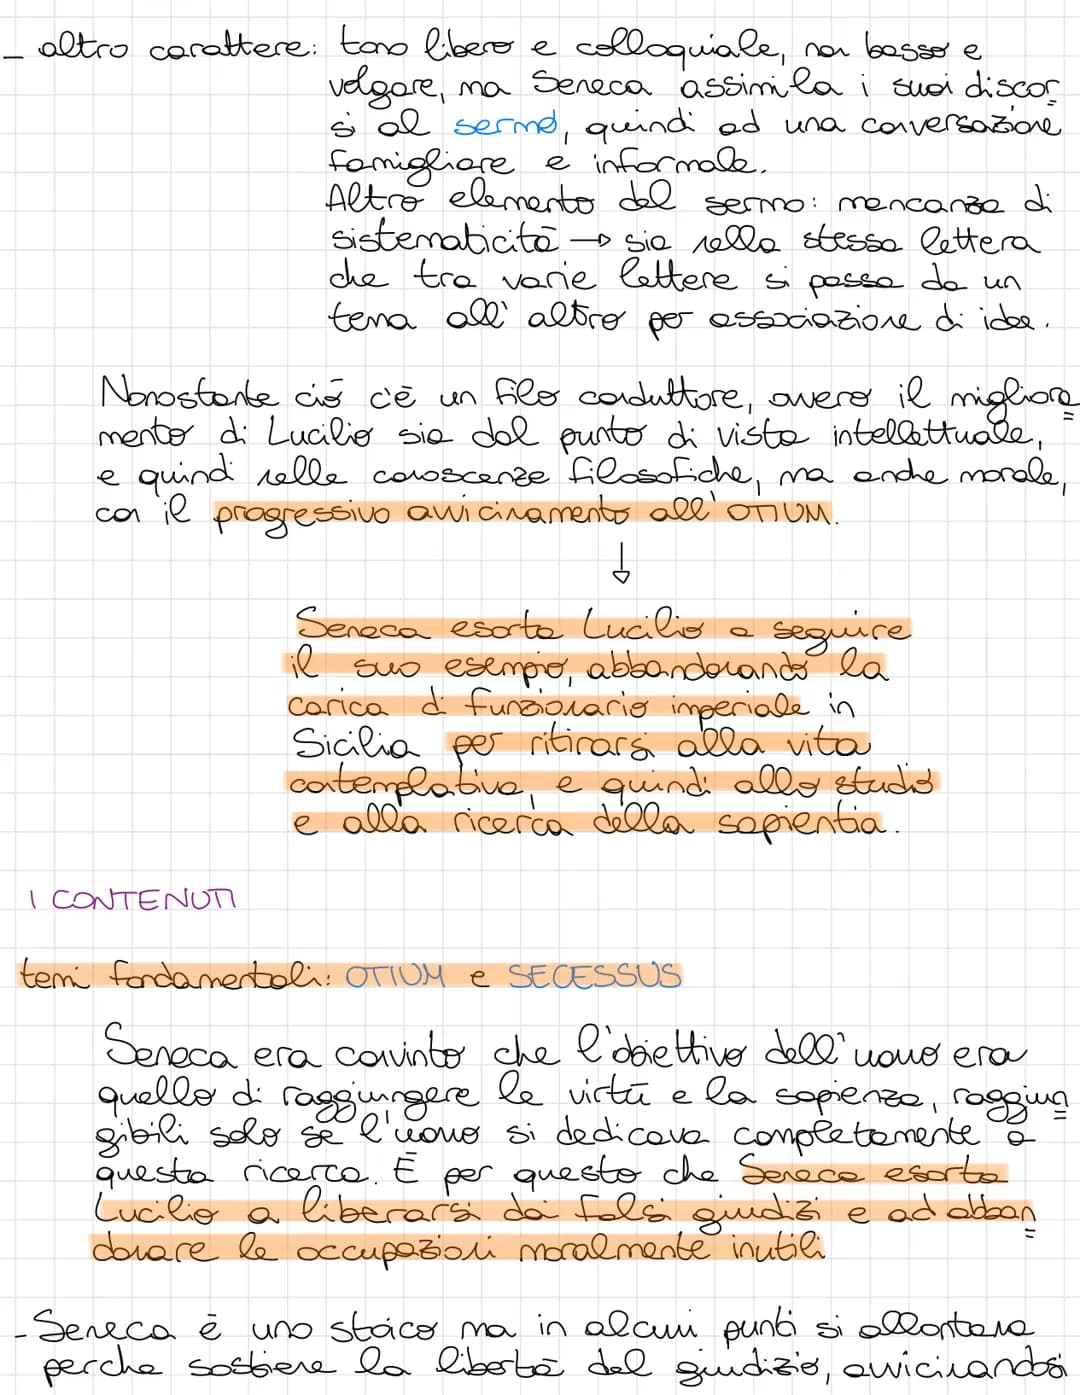 - altro carattere: tono libero e colloquiale, non basso e
volgare, ma Seneca assimila i suoi discor
si al sermo, quindi ad una conversazione
famigliare e informale.
Altro elemento del sermo: mancanza di
sistematicità → sia nella stessa lettera
che tra varie lettere si passa da un
tema all'altro per associazione di idee.
Nonostante ciò c'è un filo conduttore, ovvero il migliora=
mento di Lucilio sia dal punto di vista intellettuale,
e quindi nelle conoscenze filosofiche, ma anche morale,
con il progressivo avvicinamento all'OTIUM.
↓
Seneca esorta Lucilio a seguire
il suo esempio, abbandonando la
carica di funzionario imperiale in
Sicilia per ritirarsi alla vita
contemplativa, e quindi allo studio
e alla ricerca della sapientia.
I CONTENUTI
temi fondamentali: OTIUM e SECESSUS
Seneca era convinto che l'obiettivo dell'uomo era
quello di raggiungere le virtù e la sapienza, raggiun=
gibili solo se l'uomo si dedicava completamente a
questa ricerca. È per questo che Seneca esorta
Lucilio a liberarsi dai falsi giudizi e ad abban=
donare le occupazioni moralmente inutili
- Seneca è uno stoico ma in alcuni punti si allontana
perche sostiene la libertà del giudizio, avvicinandosi